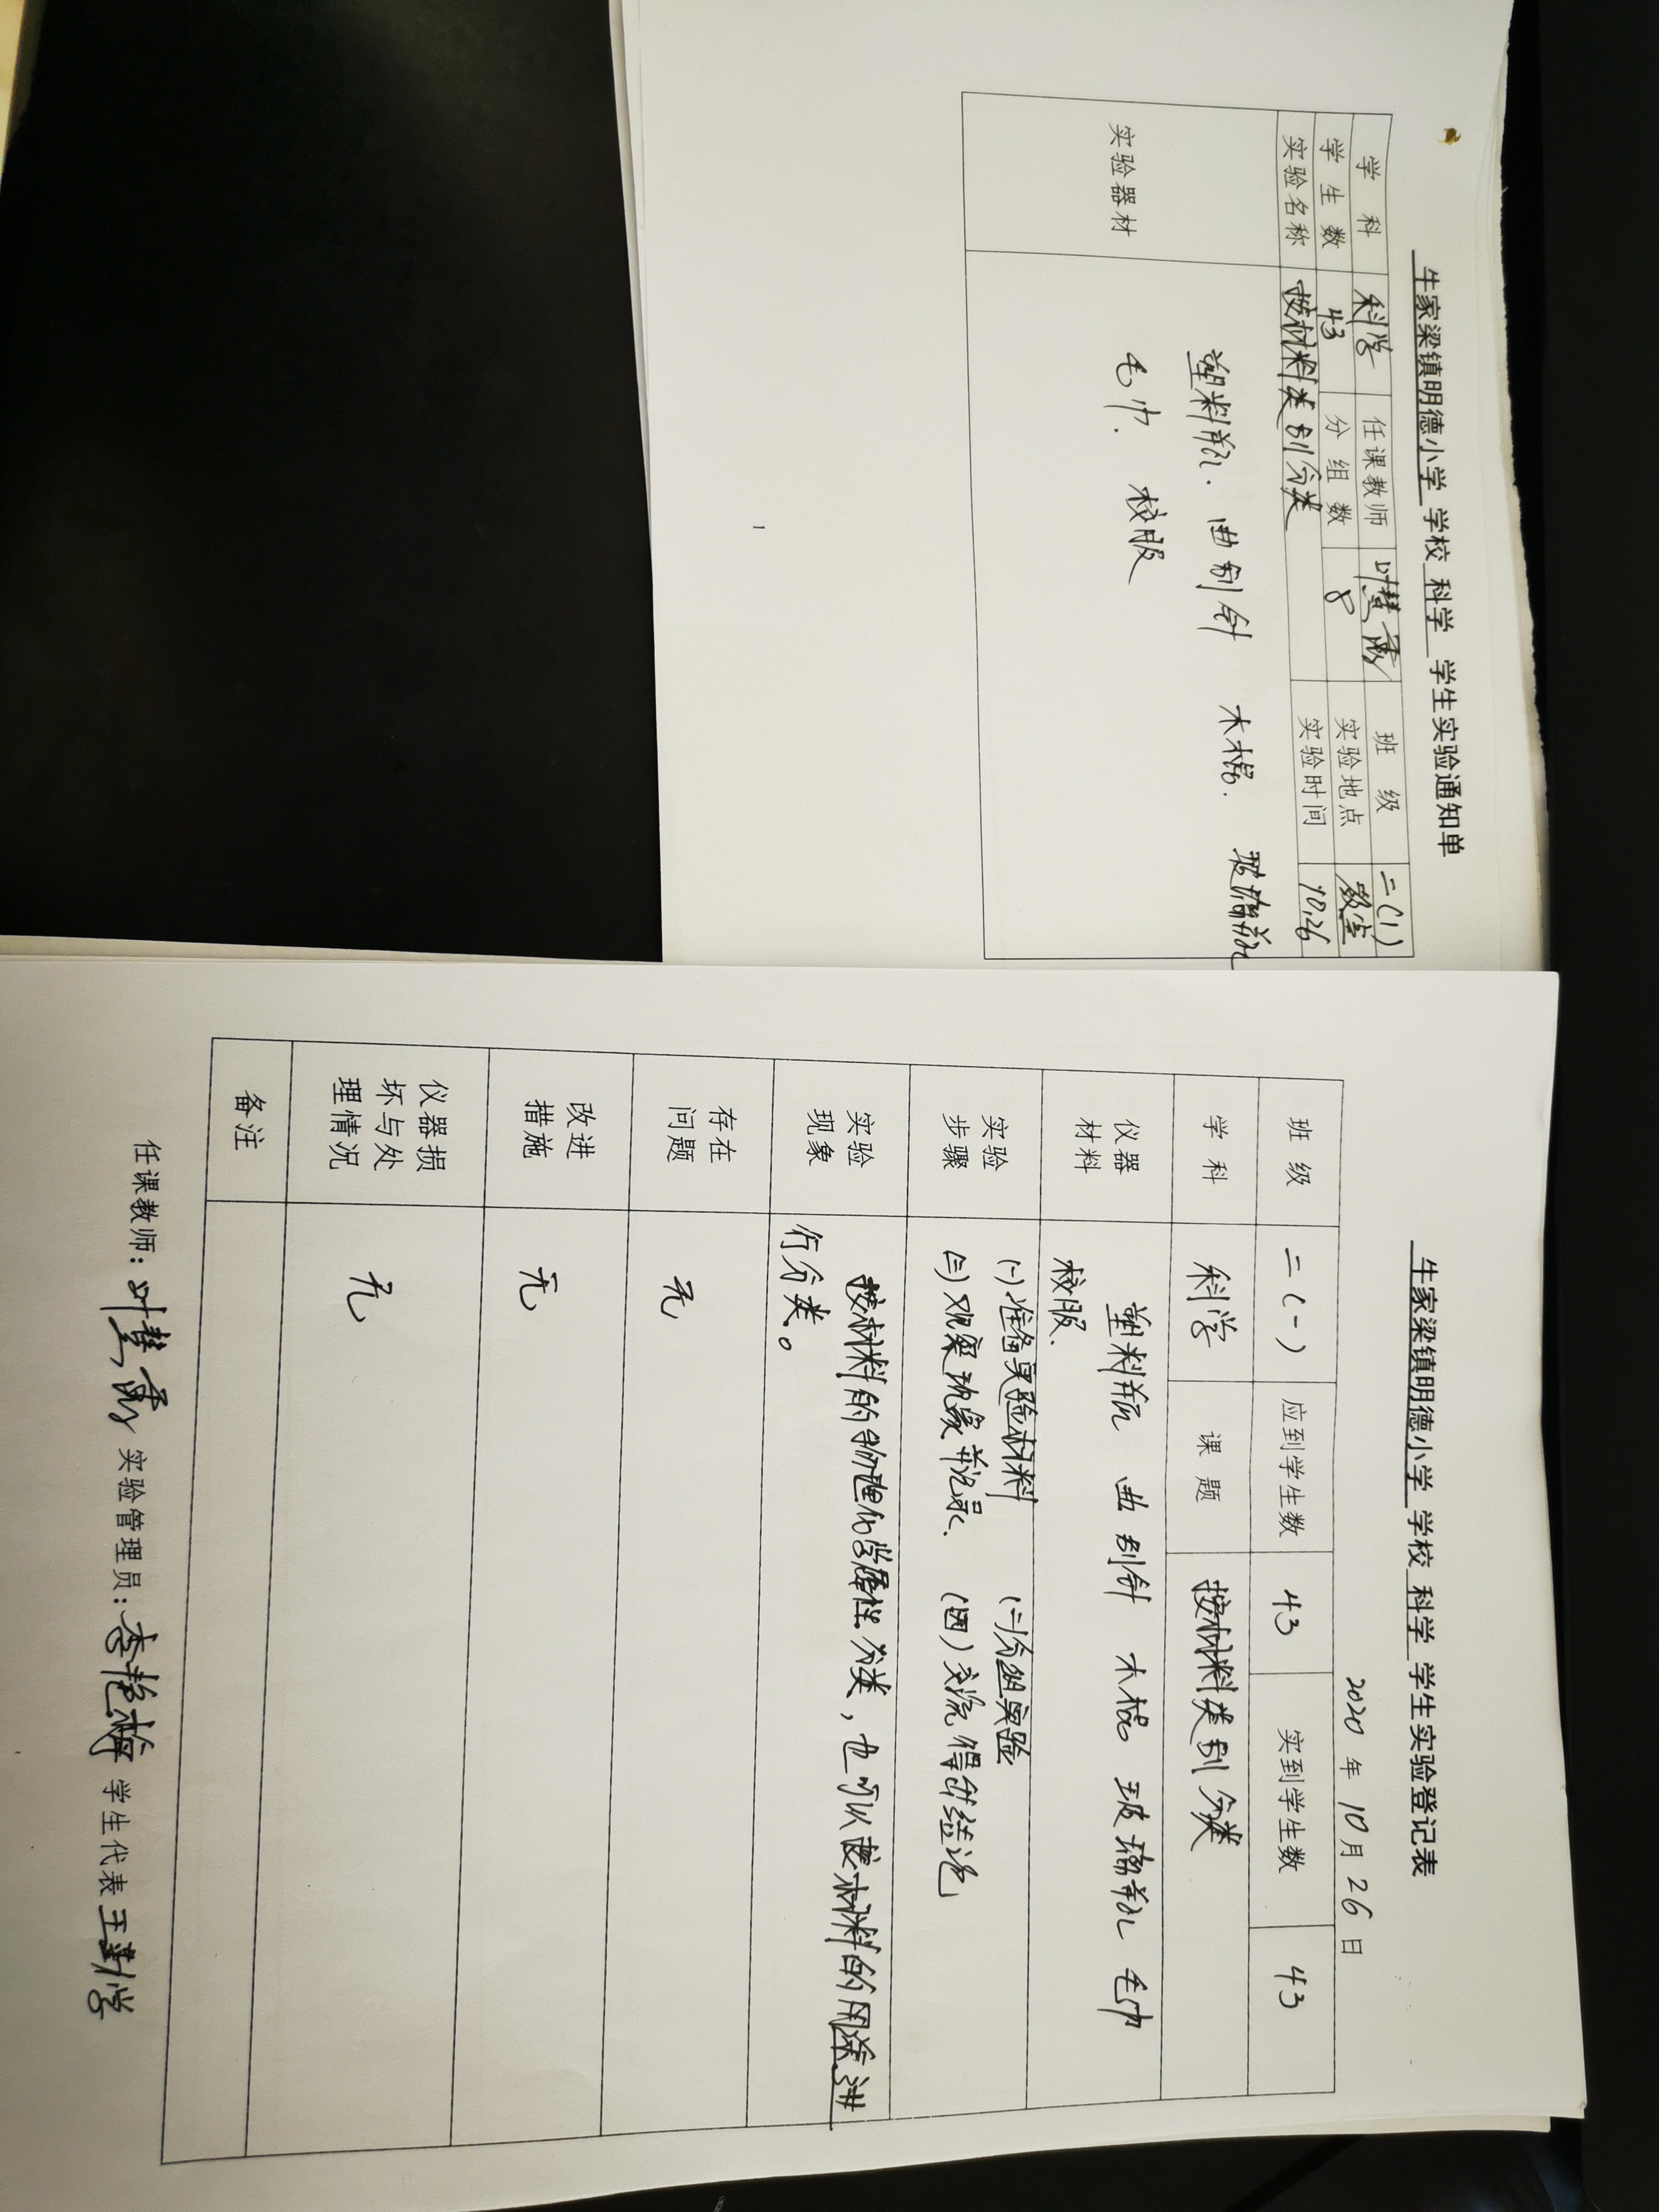 牛家梁镇明德小学 学校 科学 学生实验通知单
学 科 科学 任课教师 叶慧秀 班 级 二(1)
学 生 数 43 分 组 数 8 实验地点 教室
实验名称 按材料类别分类 实验时间 10.26
实验器材
塑料瓶. 曲别针 木棍. 玻璃瓶
毛巾. 校服
1
牛家梁镇明德小学 学校 科学 学生实验登记表
2020 年 10 月 26 日
班 级 二(一) 应到学生数 43 实到学生数 43
学 科 科学 课 题 按材料类别分类
仪器材料 塑料瓶 曲别针 木棍 玻璃瓶 毛巾
校服.
实验步骤 (一)准备实验材料 (二)分组实验
(三)观察现象并记录. (四)交流得出结论
实验现象 按材料的物理化学属性分类,也可以按材料的用途进
行分类。
存在问题 无
改进措施 无
仪器损坏与处理情况 无
备注
任课教师:叶慧秀 实验管理员:李艳梅 学生代表 王勤学